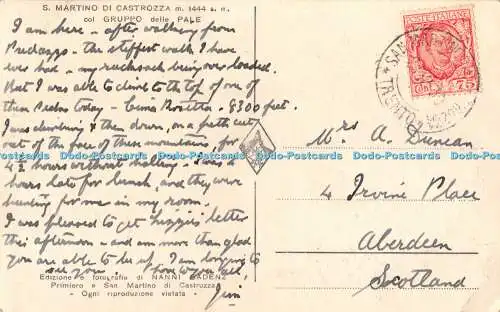 S. MARTINO DI CASTROZZA m. 1444 s. m.
col GRUPPO delle PALE
I am here - after walking from
Predazzo - the stiffest walk I have
ever had - my rucksack being overloaded.
But I was able to climb to the top of one of
these Peaks today - Cima Rosetta - 8300 feet.
I was climbing & then down, on a path cut
out of the face of these mountains, for
4½ hours without halting. I was a
hours late for lunch, and they were
hunting for me in my room.
I was pleased to get letter
this afternoon - and am more than glad
you are able to be up. I am longing to
see you.
Jim
Edizione e fotografia di NANNI GADENZ
Primiero e San Martino di Castrozza
- Ogni riproduzione vietata -
Mrs A. Duncan
4 Irvine Place
Aberdeen
Scotland
POSTE ITALIANE
Cent 75
SAN MARTINO
Dodo-Postcards Dodo-Postcards Dodo-Postcards Dodo-Postcards Dodo-Postcards